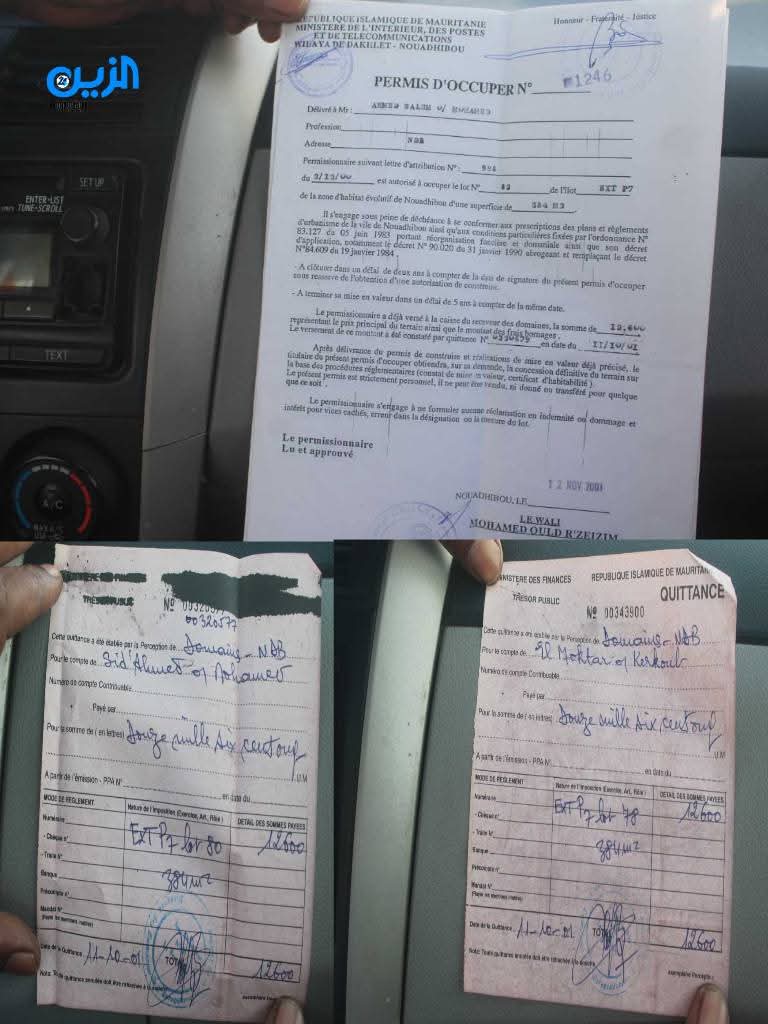 الزين
SET UP
ENTER-LIST
TUNE-SCROLL
TEXT
A/C
REPUBLIQUE ISLAMIQUE DE MAURITANIE
MINISTERE DE L'INTERIEUR, DES POSTES
ET DE TELECOMMUNICATIONS
WILAYA DE DAKHLET - NOUADHIBOU
Honneur - Fraternité - Justice
PERMIS D'OCCUPER N° 1246
Délivré à Mr : AHMED SALEM O/
Profession
Adresse NDB
Permissionnaire suivant lettre d'attribution N° : 984
du 3/12/00 est autorisé à occuper le lot N° de l'îlot EXT P7
de la zone d'habitat évolutif de Nouadhibou d'une superficie de 384 M2
Il s'engage sous peine de déchéance à se conformer aux prescriptions des plans et règlements
d'urbanisme de la ville de Nouadhibou ainsi qu'aux conditions particulières fixées par l'ordonnance N°
83.127 du 05 juin 1983 portant réorganisation foncière et domaniale ainsi que son décret
d'application, notamment le décret N° 90.020 du 31 janvier 1990 abrogeant et remplaçant le décret
N°84.009 du 19 janvier 1984 .
- A clôturer dans un délai de deux ans à compter de la date de signature du présent permis d'occuper
sous reserve de l'obtention d'une autorisation de construire.
- A terminer sa mise en valeur dans un délai de 5 ans à compter de la même date.
Le permissionnaire a déjà versé à la caisse du receveur des domaines, la somme de 12,600
représentant le prix principal du terrain ainsi que le montant des frais bornages .
Le versement de ce montant a été constaté par quittance N° en date du 11/10/01
Après délivrance du permis de construire et réalisations de mise en valeur déjà précisé, le
titulaire du présent permis d'occuper obtiendra, sur sa demande, la concession définitive du terrain sur
la base des procédures réglementaires (constat de mise en valeur, certificat d'habitabilité ).
Le présent permis est strictement personnel, il ne peut être vendu, ni donné ou transféré pour quelque
que ce soit .
Le permissionnaire s'engage à ne formuler aucune réclamation en indemnité ou dommage et
intérêts pour vices cachés, erreur dans la désignation ou la mesure du lot.
Le permissionnaire
Lu et approuvé
12 NOV 2001
NOUADHIBOU, LE
LE WALI
MOHAMED OULD R'ZEIZIM
TRESOR PUBLIC
N° 00320577
00320577
Cette quittance a été établie par la Perception de Domaine - NDB
Pour le compte de Sid'Ahmed o/ Mohamed
Numéro de compte Contribuable
Payé par
Pour la somme de ( en lettres) Douze mille six cent ouf
U.M
A partir de l'émission - PPA N° en date du
MODE DE REGLEMENT Nature de l'imposition (Exercice, Art, Rôle ) DETAIL DES SOMMES PAYEES
Numéraire
- Chèque n° Ext P7 lot 80 12600
- Traite N°
Banque 384 m²
Précompte n°
Mandat N°
Date de la Quittance 11-10-01 TOTAL 12600
Nota: Toute quittance annulée doit être rattachée à la souche
MINISTERE DES FINANCES REPUBLIQUE ISLAMIQUE DE MAURITANIE
TRESOR PUBLIC QUITTANCE
N° 00343900
Cette quittance a été établie par la Perception de Domaine - NDB
Pour le compte de El Moktar o/ Kerkoub
Numéro de compte Contribuable
Payé par
Pour la somme de ( en lettres) Douze mille six cent ouf
U.M
A partir de l'émission - PPA N° en date du
MODE DE REGLEMENT Nature de l'imposition (Exercice, Art, Rôle ) DETAIL DES SOMMES PAYEES
Numéraire
- Chèque n° Ext P7 lot 78 12600
- Traite N°
Banque 384 m²
Précompte n°
Mandat N°
Date de la Quittance 11-10-01 TOTAL 12600
Nota: Toute quittance annulée doit être rattachée à la souche